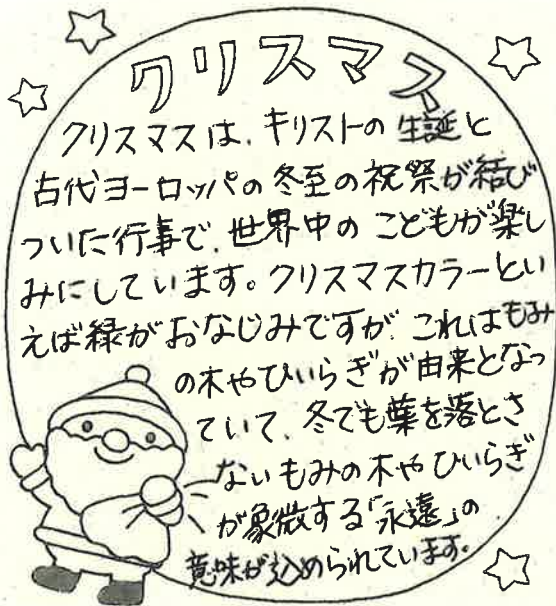 クリスマス
クリスマスは、キリストの生誕と
古代ヨーロッパの冬至の祝祭が結び
ついた行事で、世界中のこどもが楽し
みにしています。クリスマスカラーとい
えば緑がおなじみですが、これはもみ
の木やひいらぎが由来となっ
ていて、冬でも葉を落とさ
ないもみの木やひいらぎ
が象徴する「永遠」の
意味が込められています。